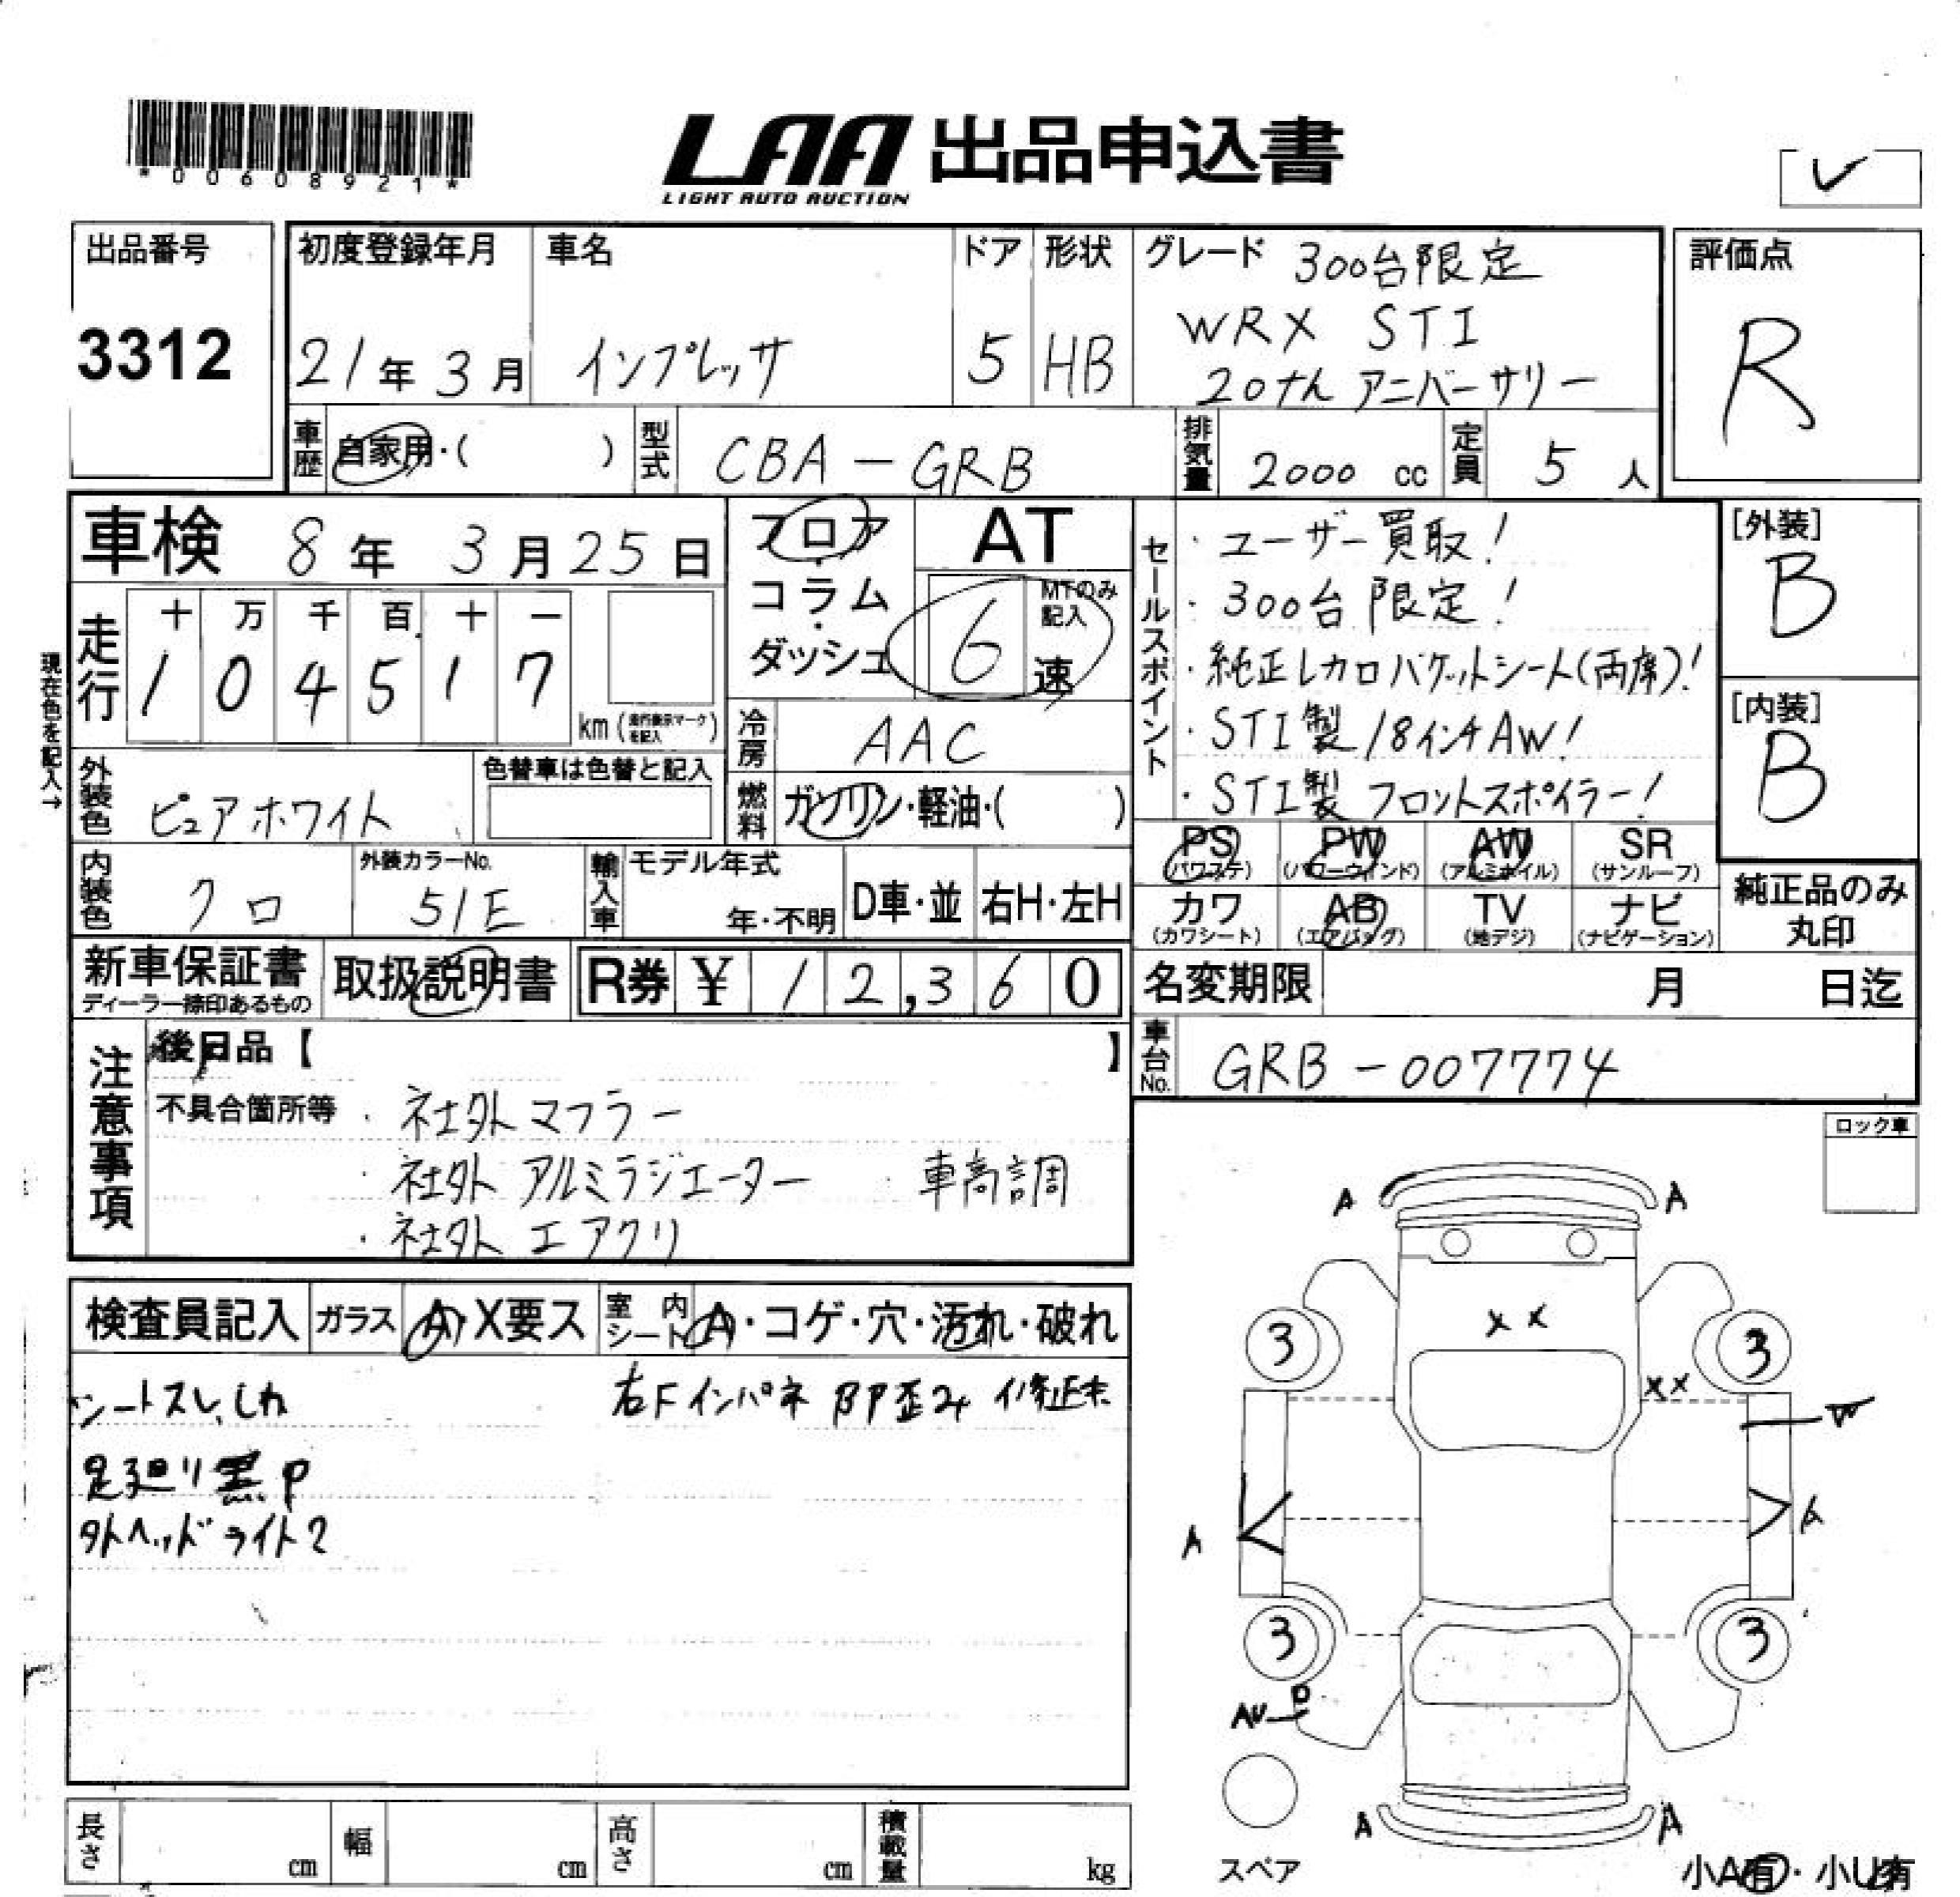 *00608921*
LAA 出品申込書
LIGHT AUTO AUCTION
✓
出品番号
3312
初度登録年月
21年3月
車名
インプレッサ
ドア
5
形状
HB
グレード 300台限定
WRX STI
20thアニバーサリー
評価点
R
車歴 自家用・( )
型式 CBA-GRB
排気量 2000 cc
定員 5人
車検 8年3月25日
フロア・コラム・ダッシュ
AT
6速 MTのみ記入
セールスポイント
・ユーザー買取!
・300台限定!
・純正レカロバケットシート(両席)!
・STI製18インチAW!
・STI製フロントスポイラー!
[外装]
B
[内装]
B
現在色を記入→
走行
十 万 千 百 十 一
1 0 4 5 1 7
km (走行表示マークを記入)
冷房 AAC
外装色 ピュアホワイト
色替車は色替と記入
燃料 ガソリン・軽油・( )
PS (パワステ)
PW (パワーウインド)
AW (アルミホイル)
SR (サンルーフ)
内装色 クロ
外装カラーNo.
51E
輸入車 モデル年式
年・不明
D車・並
右H・左H
カワ (カワシート)
AB (エアバッグ)
TV (地デジ)
ナビ (ナビゲーション)
純正品のみ
丸印
新車保証書
ディーラー捺印あるもの
取扱説明書
R券 ¥ 12,360
名変期限 月 日迄
注意事項
後日品【 】
車台No. GRB-007774
不具合箇所等
・社外マフラー
・社外アルミラジエーター 車高調
・社外エアクリ
ロック車
検査員記入
ガラス A・X要ス
室内シート A・コゲ・穴・汚れ・破れ
シートスレ、しわ
右Fインパネ BP歪み 修正末
足廻り黒P
外ヘッドライト2
A A
XX
3 3
XX
W
A A
3 3
AU P
スペア
A A
小A有・小U有
長さ cm
幅 cm
高さ cm
積載量 kg